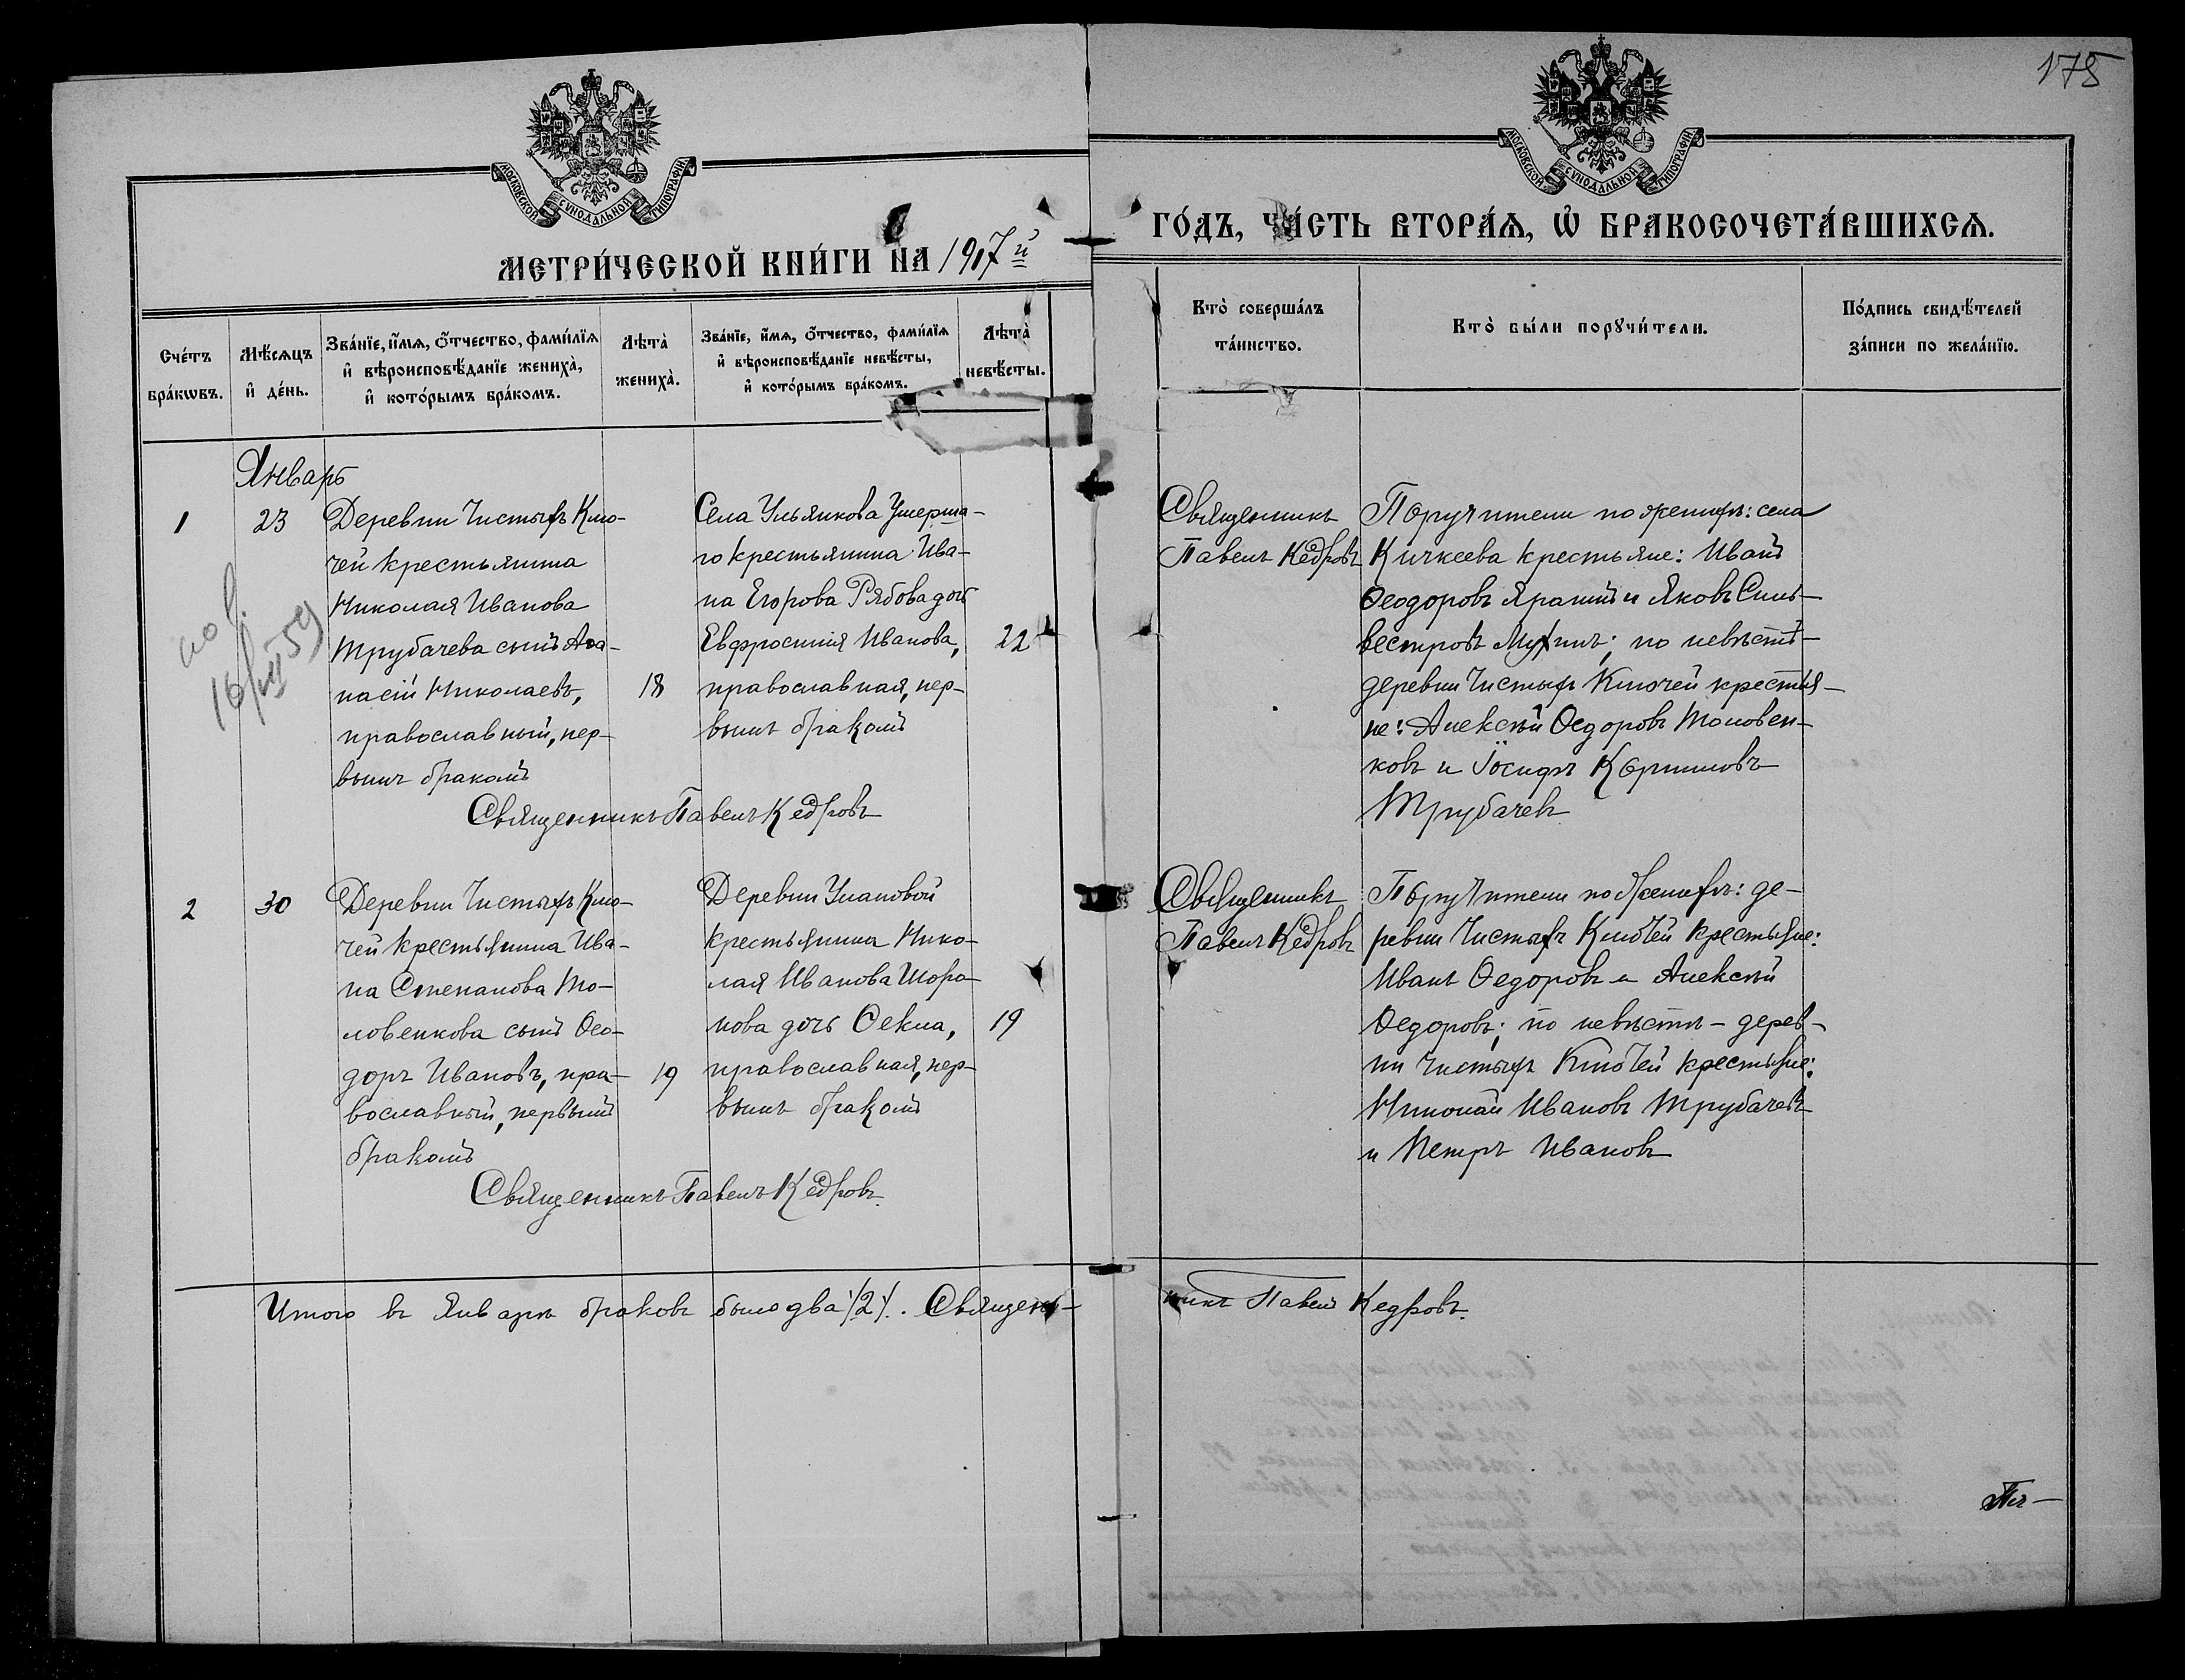 175
МОСКОВСКОЙ СУНОДАЛЬНОЙ ТИПОГРАФИИ
МОСКОВСКОЙ СУНОДАЛЬНОЙ ТИПОГРАФИИ
МЕТРИ́ЧЕСКОЙ КНИ́ГИ НА 1917й
ГО́ДЪ, ЧА́СТЬ ВТОРА́Я, Ѽ БРАКОСОЧЕТА́ВШИХСЯ.
Сче́тъ бра́кѡвъ.
Мѣ́сяцъ и҆ де́нь.
Зва́нїе, и҆́мя, ѻ҆́тчество, фами́лїя и҆ вѣроисповѣ́данїе жениха̀, и҆ кото́рымъ бра́комъ.
Лѣта̀ жениха̀.
Зва́нїе, и҆́мя, ѻ҆́тчество, фами́лїя и҆ вѣроисповѣ́данїе невѣ́сты, и҆ кото́рымъ бра́комъ.
Лѣта̀ невѣ́сты.
Кто̀ соверша́лъ та́инство.
Кто̀ бы́ли порꙋчи́тели.
По́дпись свидѣ́телей за́писи по жела́нїю.
Январь
1
23
Деревни Чистыхъ Клю-
чей крестьянина
Николая Иванова
Трубачева сынъ Аѳа-
насій Николаевъ,
православный, пер-
вымъ бракомъ
18
Села Ульянкова Умерша-
го крестьянина Ива-
на Егорова Рябова дочь
Евфросинія Иванова,
православная, пер-
вымъ бракомъ
22
Священникъ Павелъ Кедровъ
Священникъ
Павелъ Кедровъ
Поручители по женихѣ: села
Кичкеева крестьяне: Иванъ
Ѳеодоровъ и Яковъ Силь-
вестровъ Мухинъ; по невѣстѣ-
деревни Чистыхъ Ключей крестья-
не: Алексѣй Ѳедоровъ Толовен-
ковъ и Іосифъ Корниловъ
Трубачевъ
16/VII 59
2
30
Деревни Чистыхъ Клю-
чей крестьянина Ива-
на Степанова То-
ловенкова сынъ Ѳео-
доръ Ивановъ, пра-
вославный, первымъ
бракомъ
19
Деревни Улановой
крестьянина Нико-
лая Иванова Шора-
нова дочь Ѳекла,
православная, пер-
вымъ бракомъ
19
Священникъ Павелъ Кедровъ.
Священникъ
Павелъ Кедровъ
Поручители по женихѣ: де-
ревни Чистыхъ Ключей крестьяне:
Иванъ Ѳедоровъ и Алексѣй
Ѳедоровъ; по невѣстѣ - дерев-
ни Чистыхъ Ключей крестьяне:
Николай Ивановъ Трубачевъ
и Петръ Ивановъ
Итого въ Январѣ браковъ было два /2/. Священ-
никъ Павелъ Кедровъ.